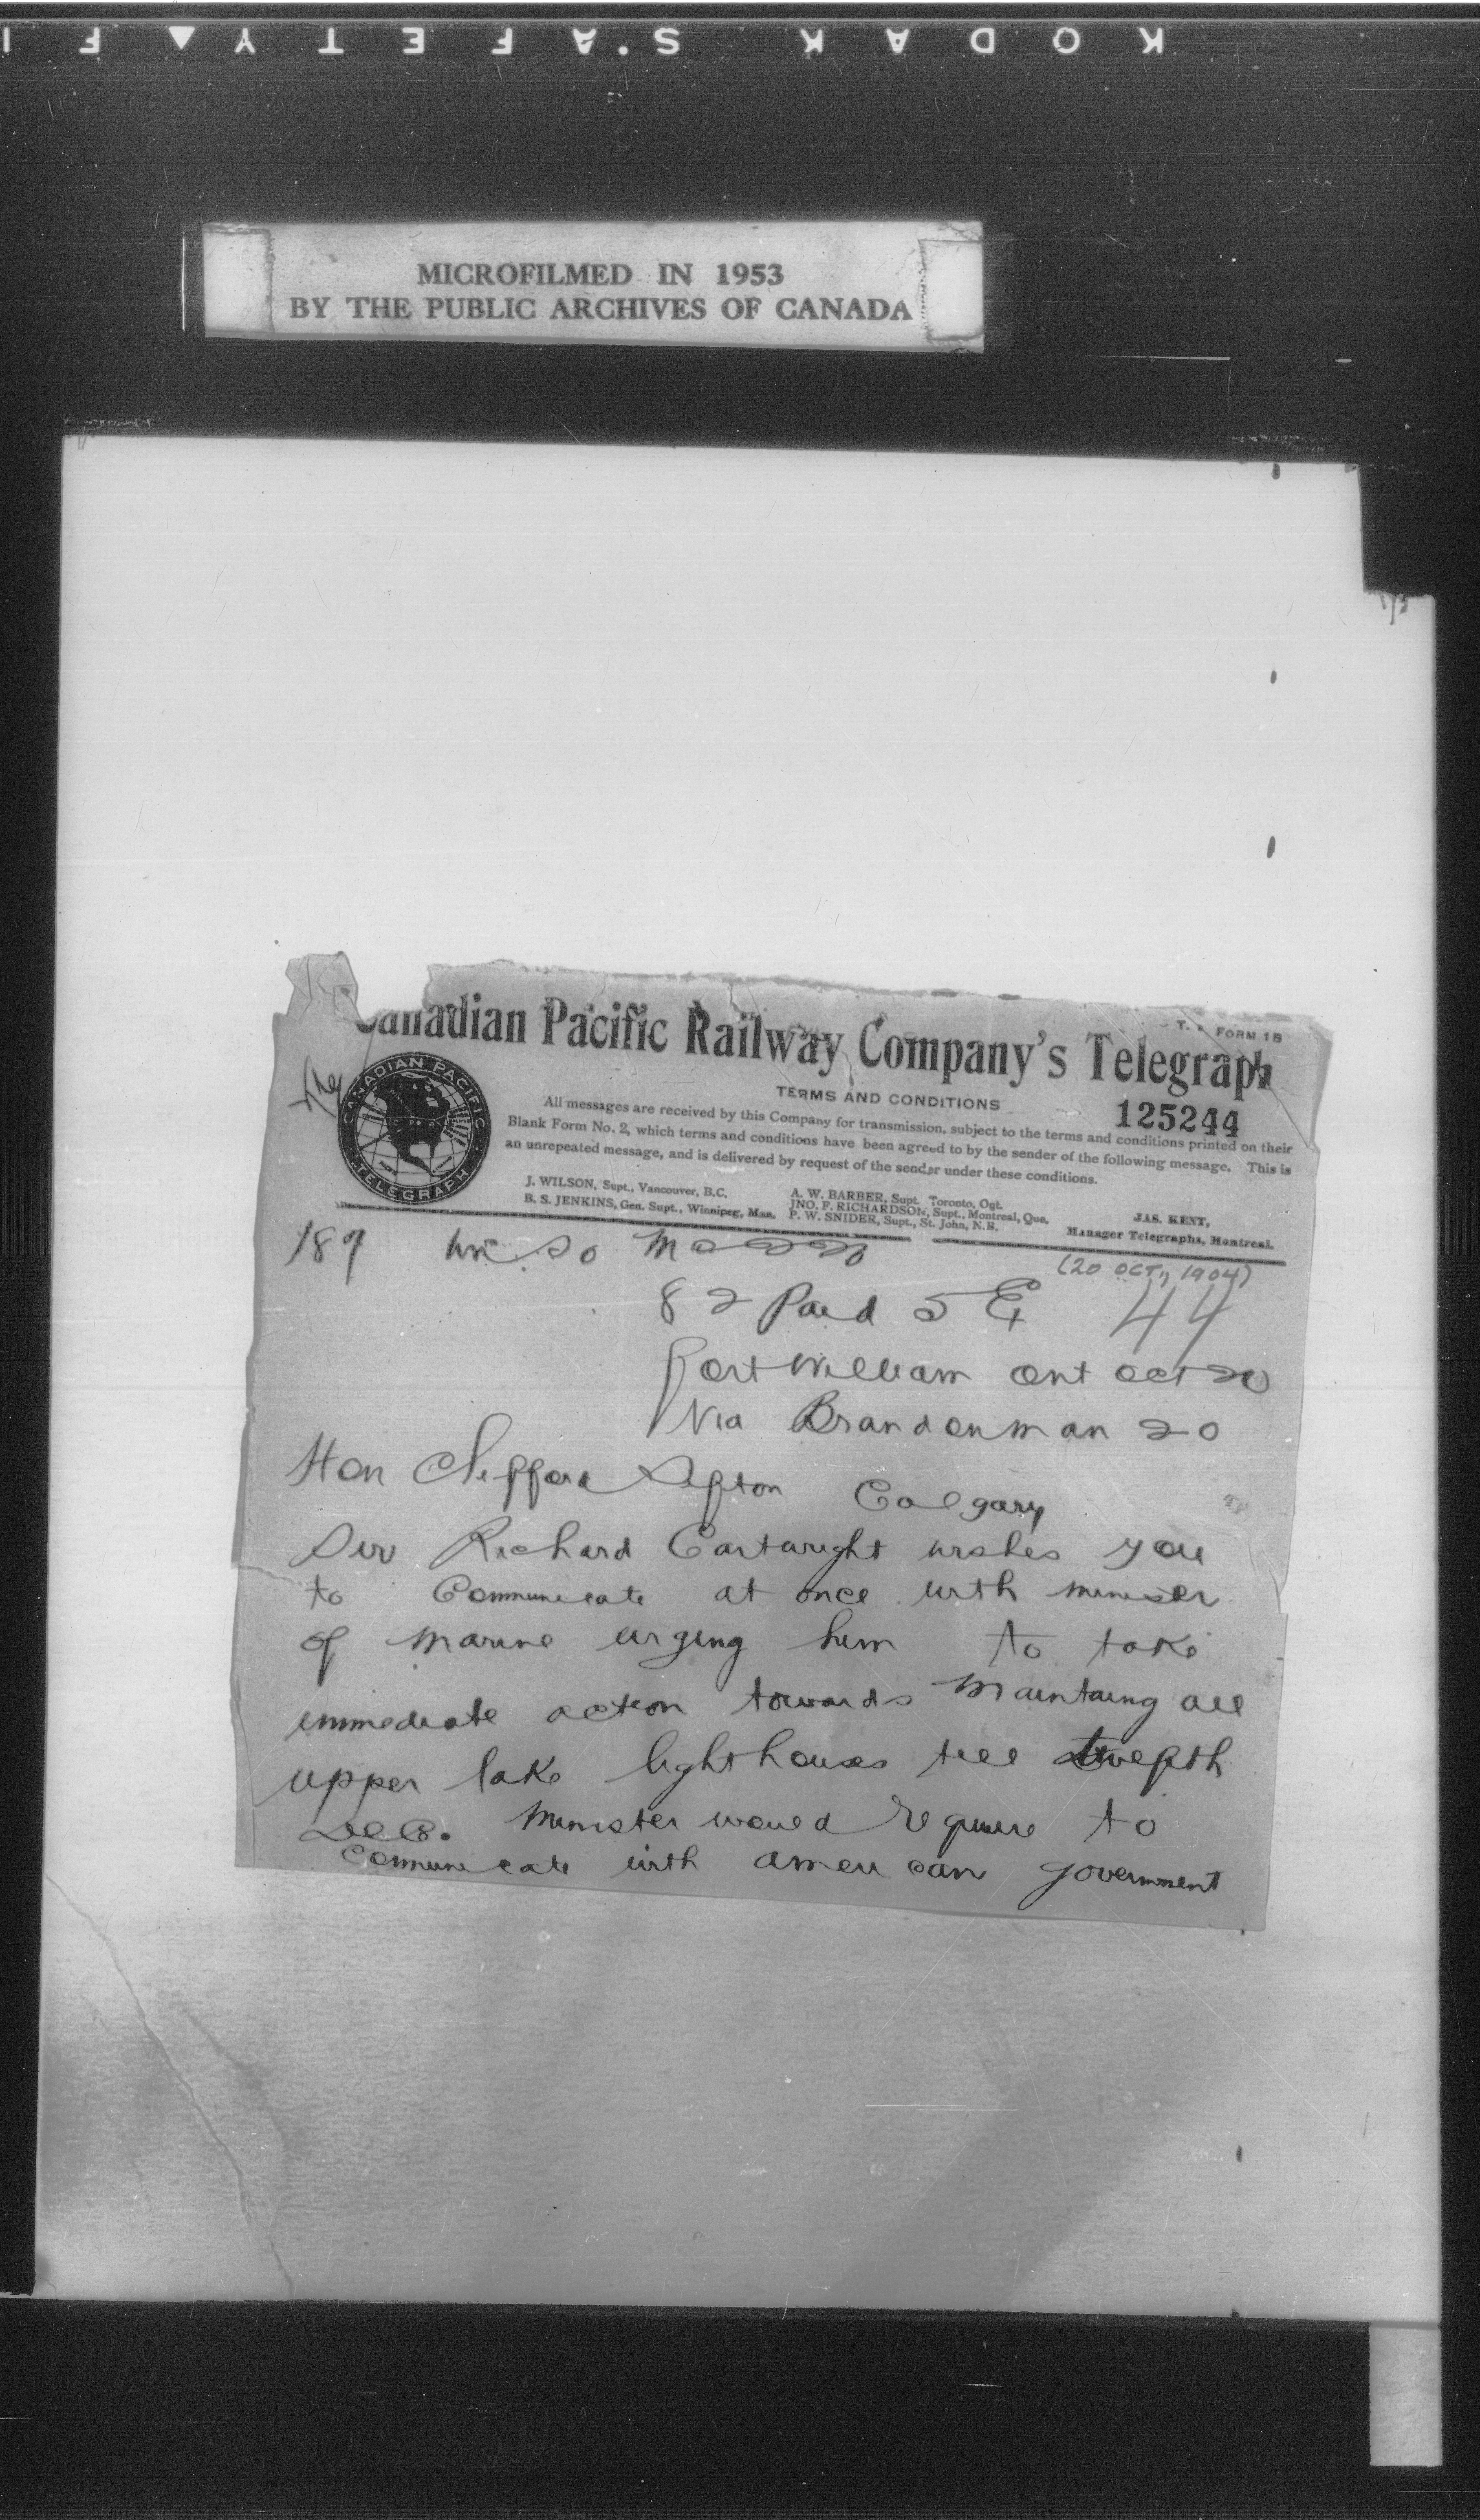 KODAK SAFETY FI
MICROFILMED IN 1953
BY THE PUBLIC ARCHIVES OF CANADA
T. FORM 1B
The Canadian Pacific Railway Company's Telegraph
CANADIAN PACIFIC
TELEGRAPH
TERMS AND CONDITIONS
125244
All messages are received by this Company for transmission, subject to the terms and conditions printed on their
Blank Form No. 2, which terms and conditions have been agreed to by the sender of the following message. This is
an unrepeated message, and is delivered by request of the sender under these conditions.
J. WILSON, Supt., Vancouver, B.C.
B. S. JENKINS, Gen. Supt., Winnipeg, Man.
A. W. BARBER, Supt. Toronto, Ont.
JNO. F. RICHARDSON, Supt., Montreal, Que.
P. W. SNIDER, Supt., St. John, N.B.
JAS. KENT,
Manager Telegraphs, Montreal.
187
(20 OCT., 1904)
82 Paid 5 44
Fort William Ont Oct 20
Via Brandon man 20
Hon Clifford Sifton Calgary
Sir Richard Cartwright wishes you
to Communicate at once with minister
of marine urging him to take
immediate action towards Maintaing all
upper lake lighthouses till twelfth
Dec. Minister would require to
Communicate with american government